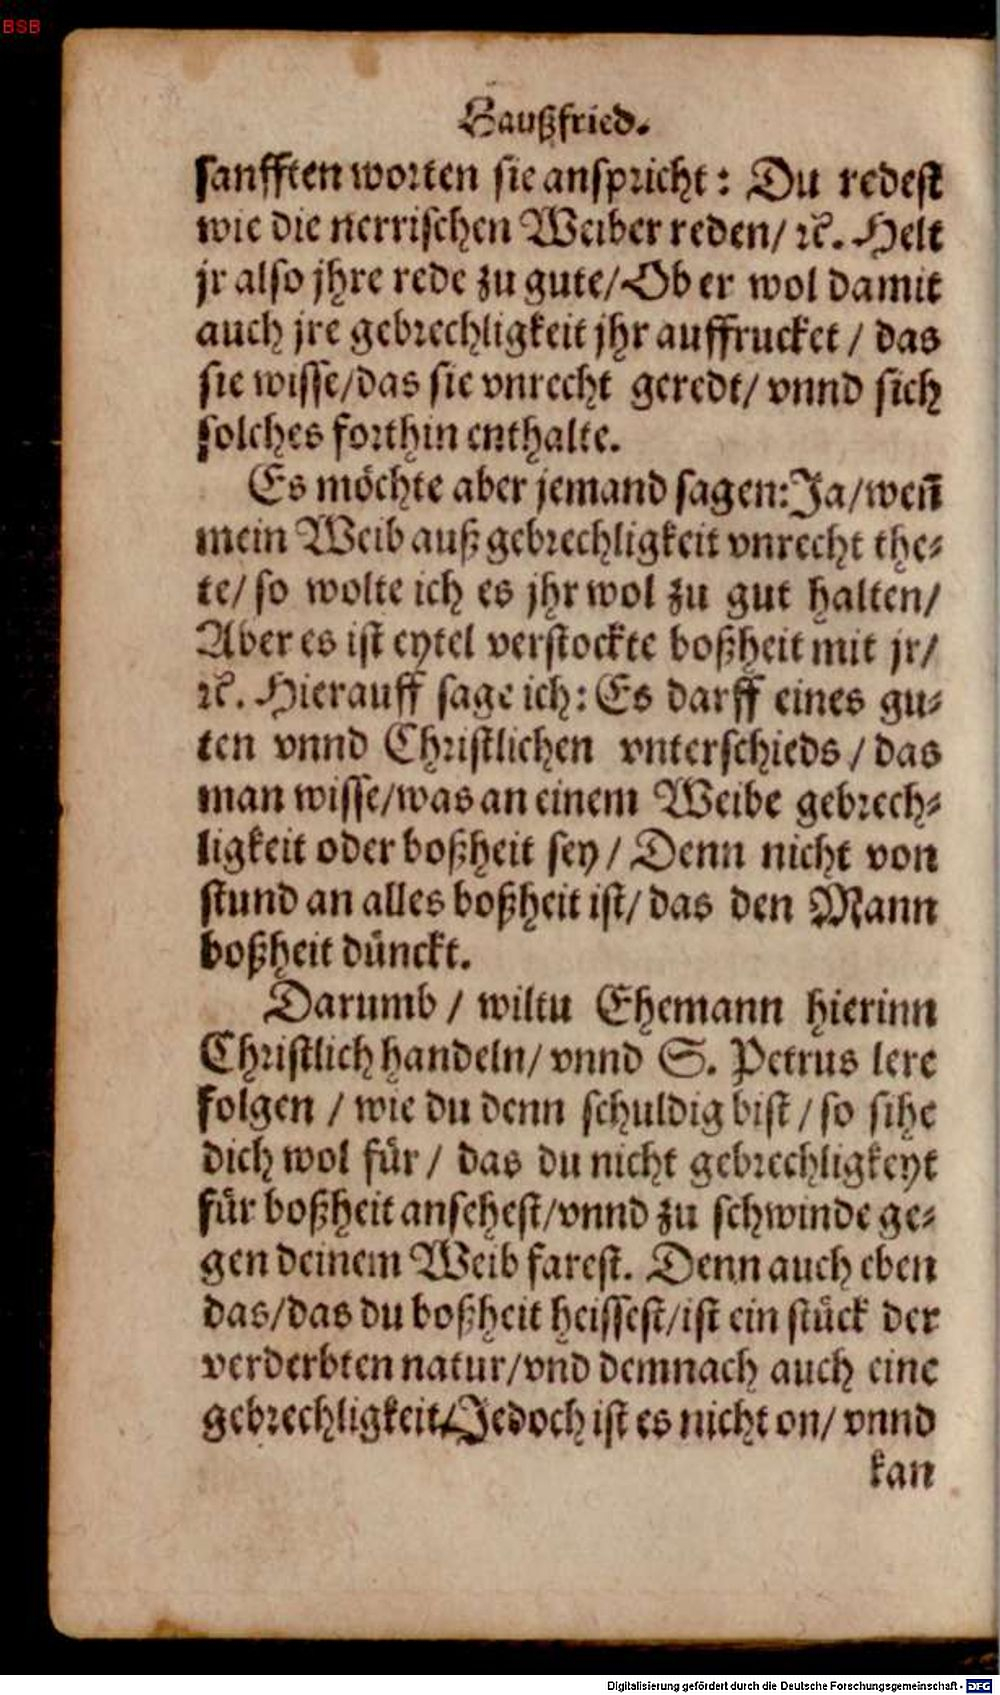 BSB
Haußfried.
sanfften worten sie anspricht: Du redest
wie die nerrischen Weiber reden/ ꝛc. Helt
jr also jhre rede zu gute/ Ob er wol damit
auch jre gebrechligkeit jhr auffrucket / das
sie wisse/das sie vnrecht geredt/ vnnd sich
solches forthin enthalte.
Es möchte aber jemand sagen: Ja/weñ
mein Weib auß gebrechligkeit vnrecht the⸗
te/ so wolte ich es jhr wol zu gut halten/
Aber es ist eytel verstockte boßheit mit jr/
ꝛc. Hierauff sage ich: Es darff eines gu⸗
ten vnnd Christlichen vnterschieds / das
man wisse/was an einem Weibe gebrech⸗
ligkeit oder boßheit sey / Denn nicht von
stund an alles boßheit ist/ das den Mann
boßheit dünckt.
Darumb / wiltu Ehemann hierinn
Christlich handeln/ vnnd S. Petrus lere
folgen / wie du denn schuldig bist / so sihe
dich wol für / das du nicht gebrechligkeyt
für boßheit ansehest/vnnd zu schwinde ge⸗
gen deinem Weib farest. Denn auch eben
das/das du boßheit heissest/ist ein stück der
verderbten natur/vnd demnach auch eine
gebrechligkeit/ Jedoch ist es nicht on/ vnnd
kan
Digitalisierung gefördert durch die Deutsche Forschungsgemeinschaft - DFG